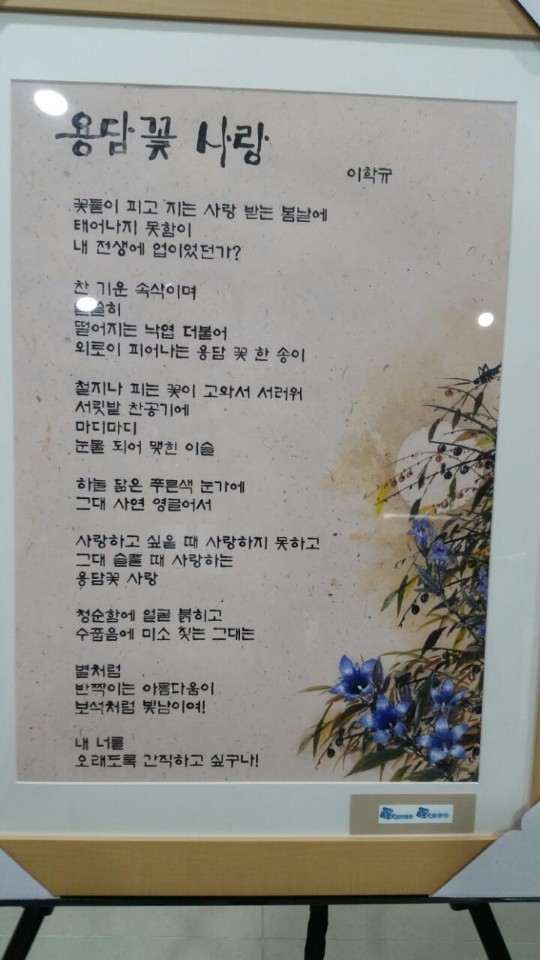 용담꽃 사랑
이학규
꽃들이 피고 지는 사랑 받는 봄날에
태어나지 못함이
내 전생에 업이었던가?
찬 기운 속삭이며
떨어지는 낙엽 더불어
외로이 피어나는 용담 꽃 한 송이
철지나 피는 꽃이 고와서 서러워
서릿발 찬공기에
마디마디
눈물 되어 맺힌 이슬
하늘 닮은 푸른색 눈가에
그대 사연 영글어서
사랑하고 싶을 때 사랑하지 못하고
그대 슬플 때 사랑하는
용담꽃 사랑
청순함에 얼굴 붉히고
수줍음에 미소 짓는 그대는
별처럼
반짝이는 아름다움이
보석처럼 빛남이여!
내 너를
오래도록 간직하고 싶구나!